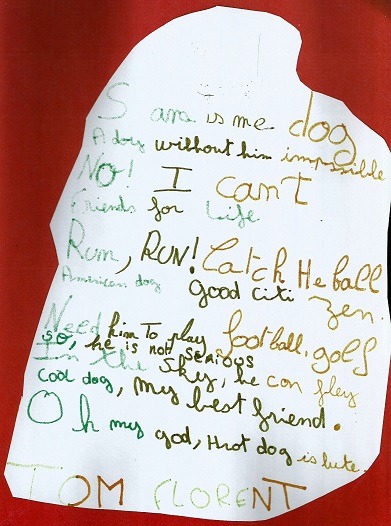 S am is me dog
A day without him impossible
No! I can't
Friends for Life
Run, RUN! Catch He ball
American dog good citi zen.
Need him To play football, golf
so, he is not serious
In the sky, he can fley
Cool dog, my best friend.
Oh my god, Hot dog is
TOM FLORENT